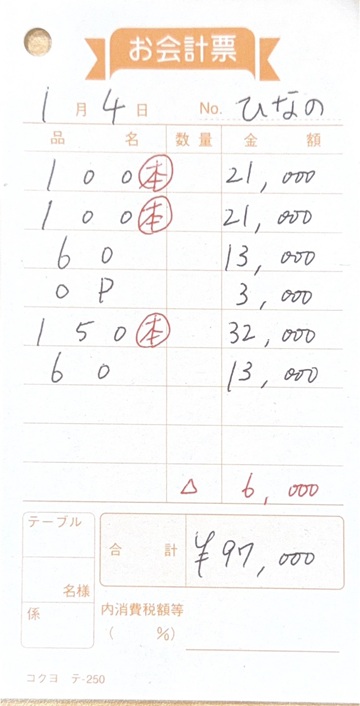 お会計票
1月4日 No. ひなの
品名 数量 金額
100 本 21,000
100 本 21,000
60 13,000
OP 3,000
150 本 32,000
60 13,000
△ 6,000
テーブル
名様
係
合計 ¥97,000
内消費税額等
( %)
コクヨ テ-250